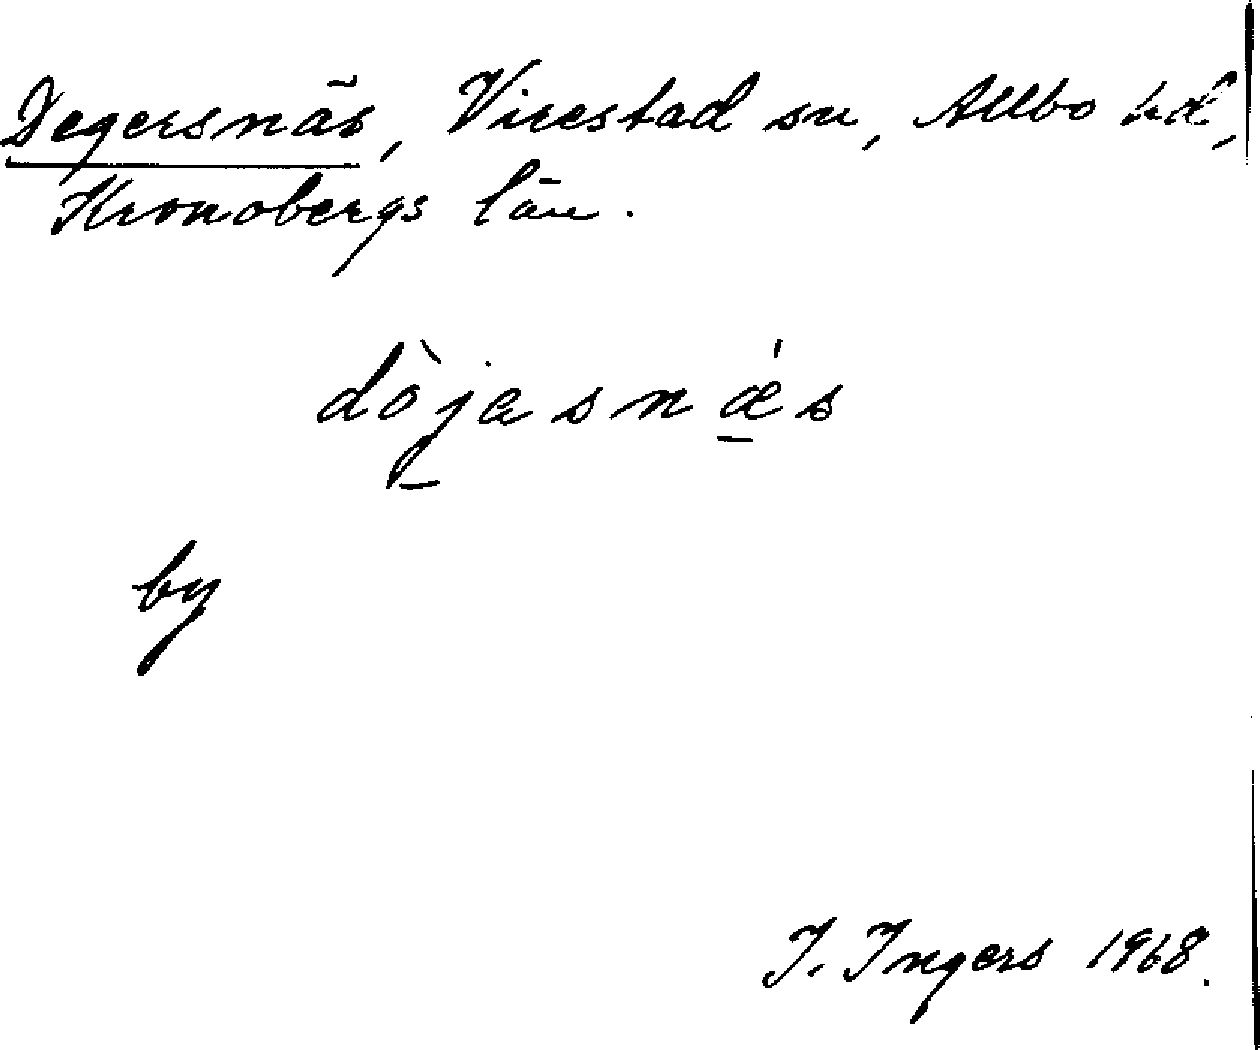 Degersnäs, Virestad sn, Allbo hd,
Kronobergs län.
dòjasnǽs
by
I. Ingers 1968.